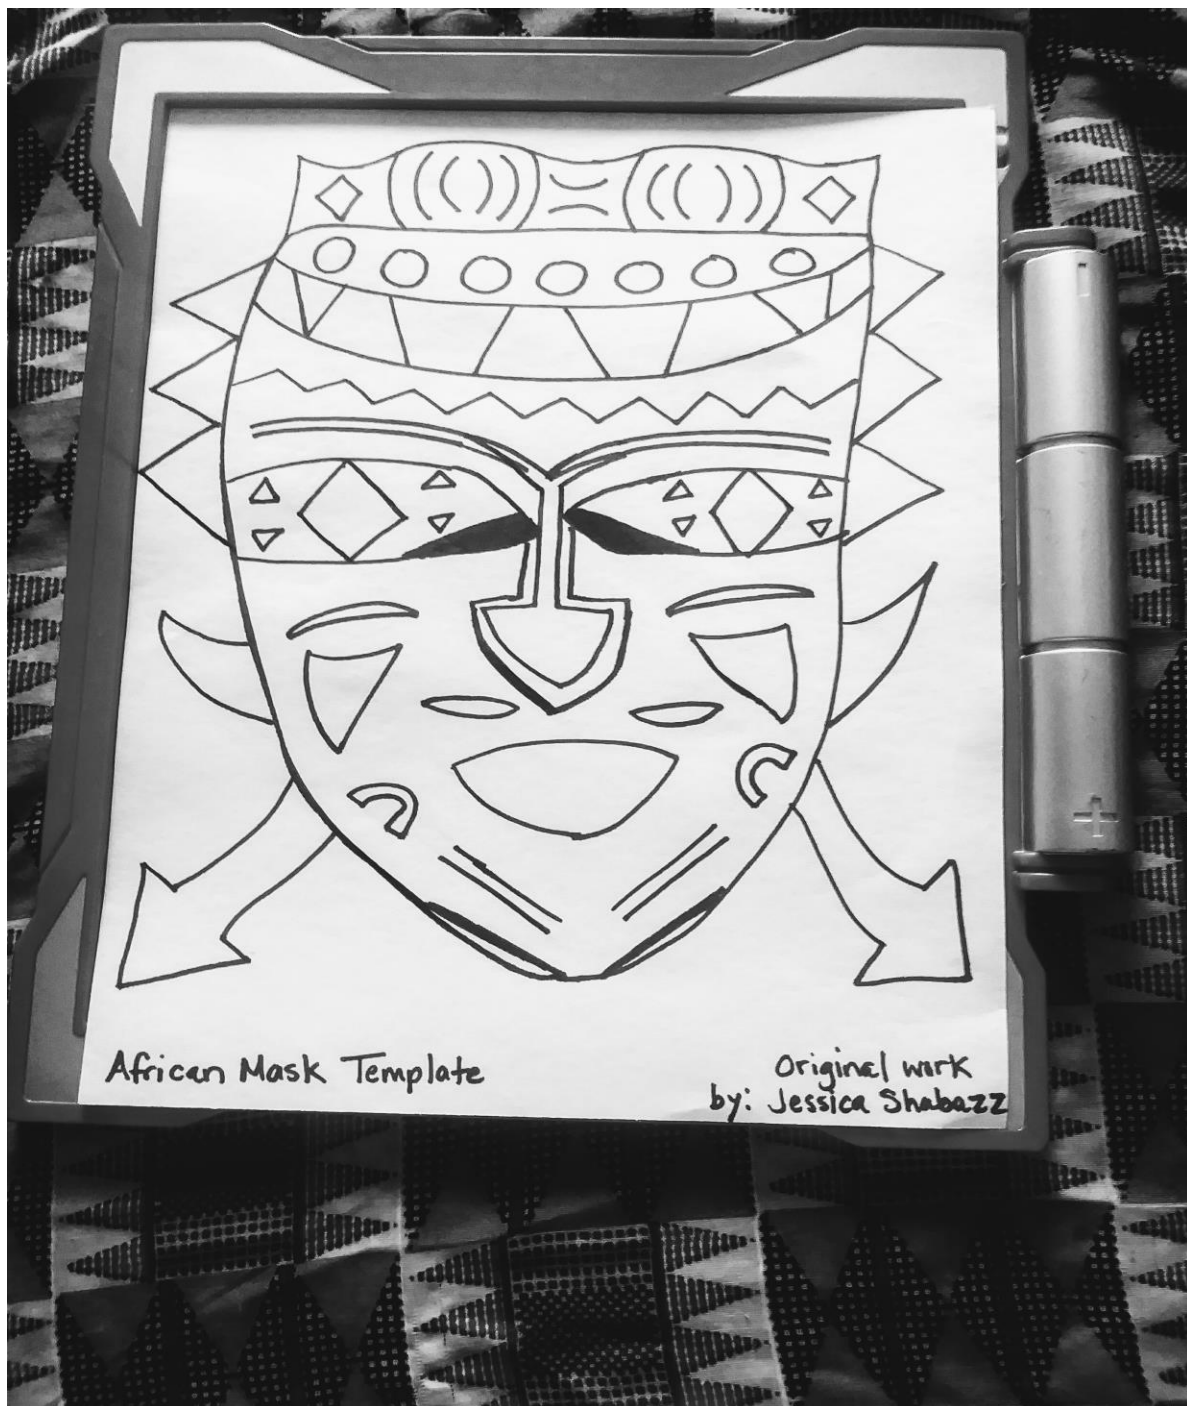 African Mask Template
Original work
by: Jessica Shabazz